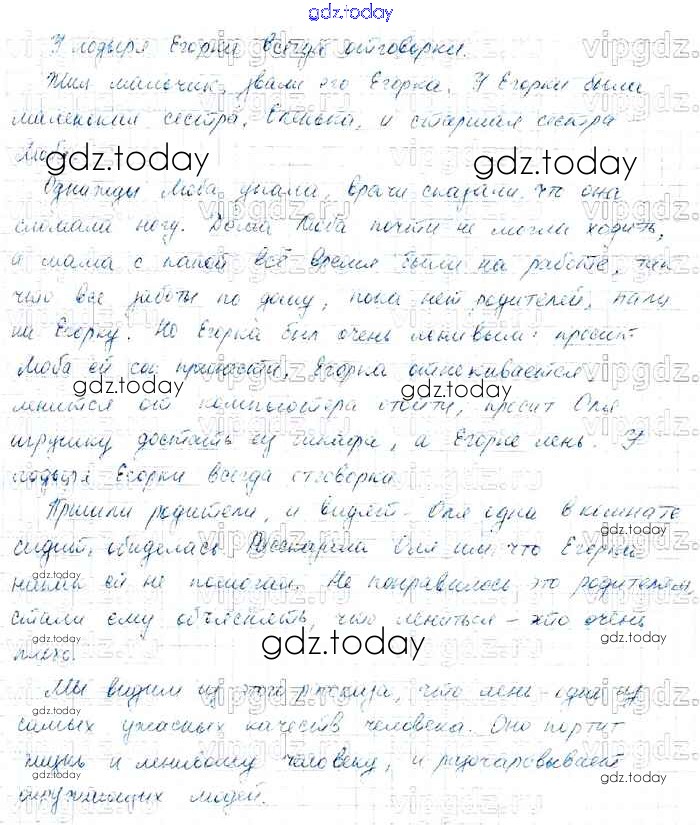 gdz.today
У лодыря Егорки всегда отговорки.
Жил мальчик, звали его Егорка. У Егорки были
маленькая сестра, Оленька, и старшая сестра
Люба.
Однажды Люба упала, врачи сказали, что она
сломала ногу. Долго Люба почти не могли ходить,
а мама с папой всё время были на работе, так
что все заботы по дому, пока нет родителей, пали
на Егорку. Но Егорка был очень ленивым: просит
Люба ей сок принести, Егорка отнекивается,
ленится от компьютера отойти, просит Оля
игрушку достать ей, а Егорке лень. У
лодыря Егорки всегда отговорка.
Пришли родители, и видят - Оля одна в комнате
сидит, обиделась. Рассказала Оля им, что Егорка
ей не помогал. Не понравилось это родителям,
стали ему объяснять, что лениться – это очень
плохо.
Мы видим из этого рассказа, что лень - одна из
самых ужасных качеств человека. Оно портит
жизнь и ленивому человеку, и разочаровывает
окружающих людей.